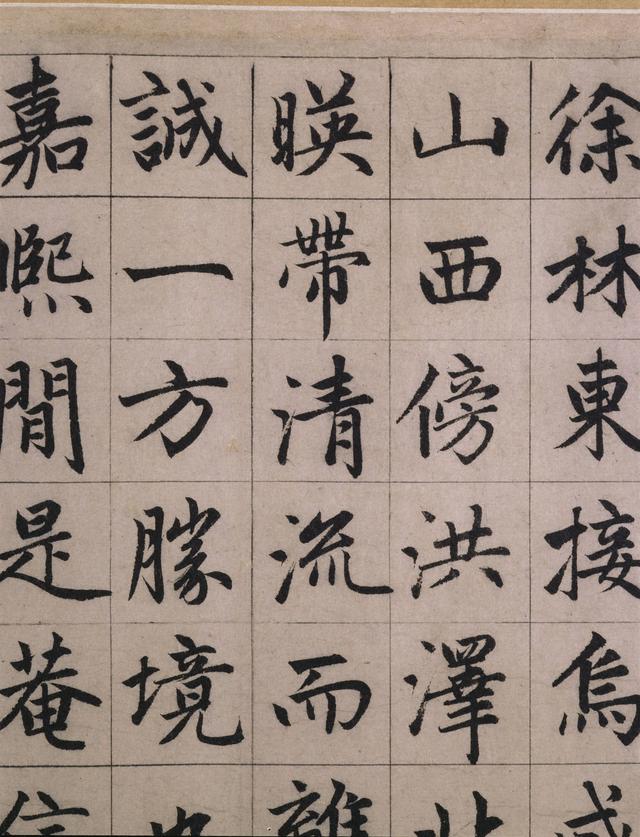 徐林東接烏戍
山西傍洪澤北
暎帶清流而離
誠一方勝境也
嘉熈間是菴信